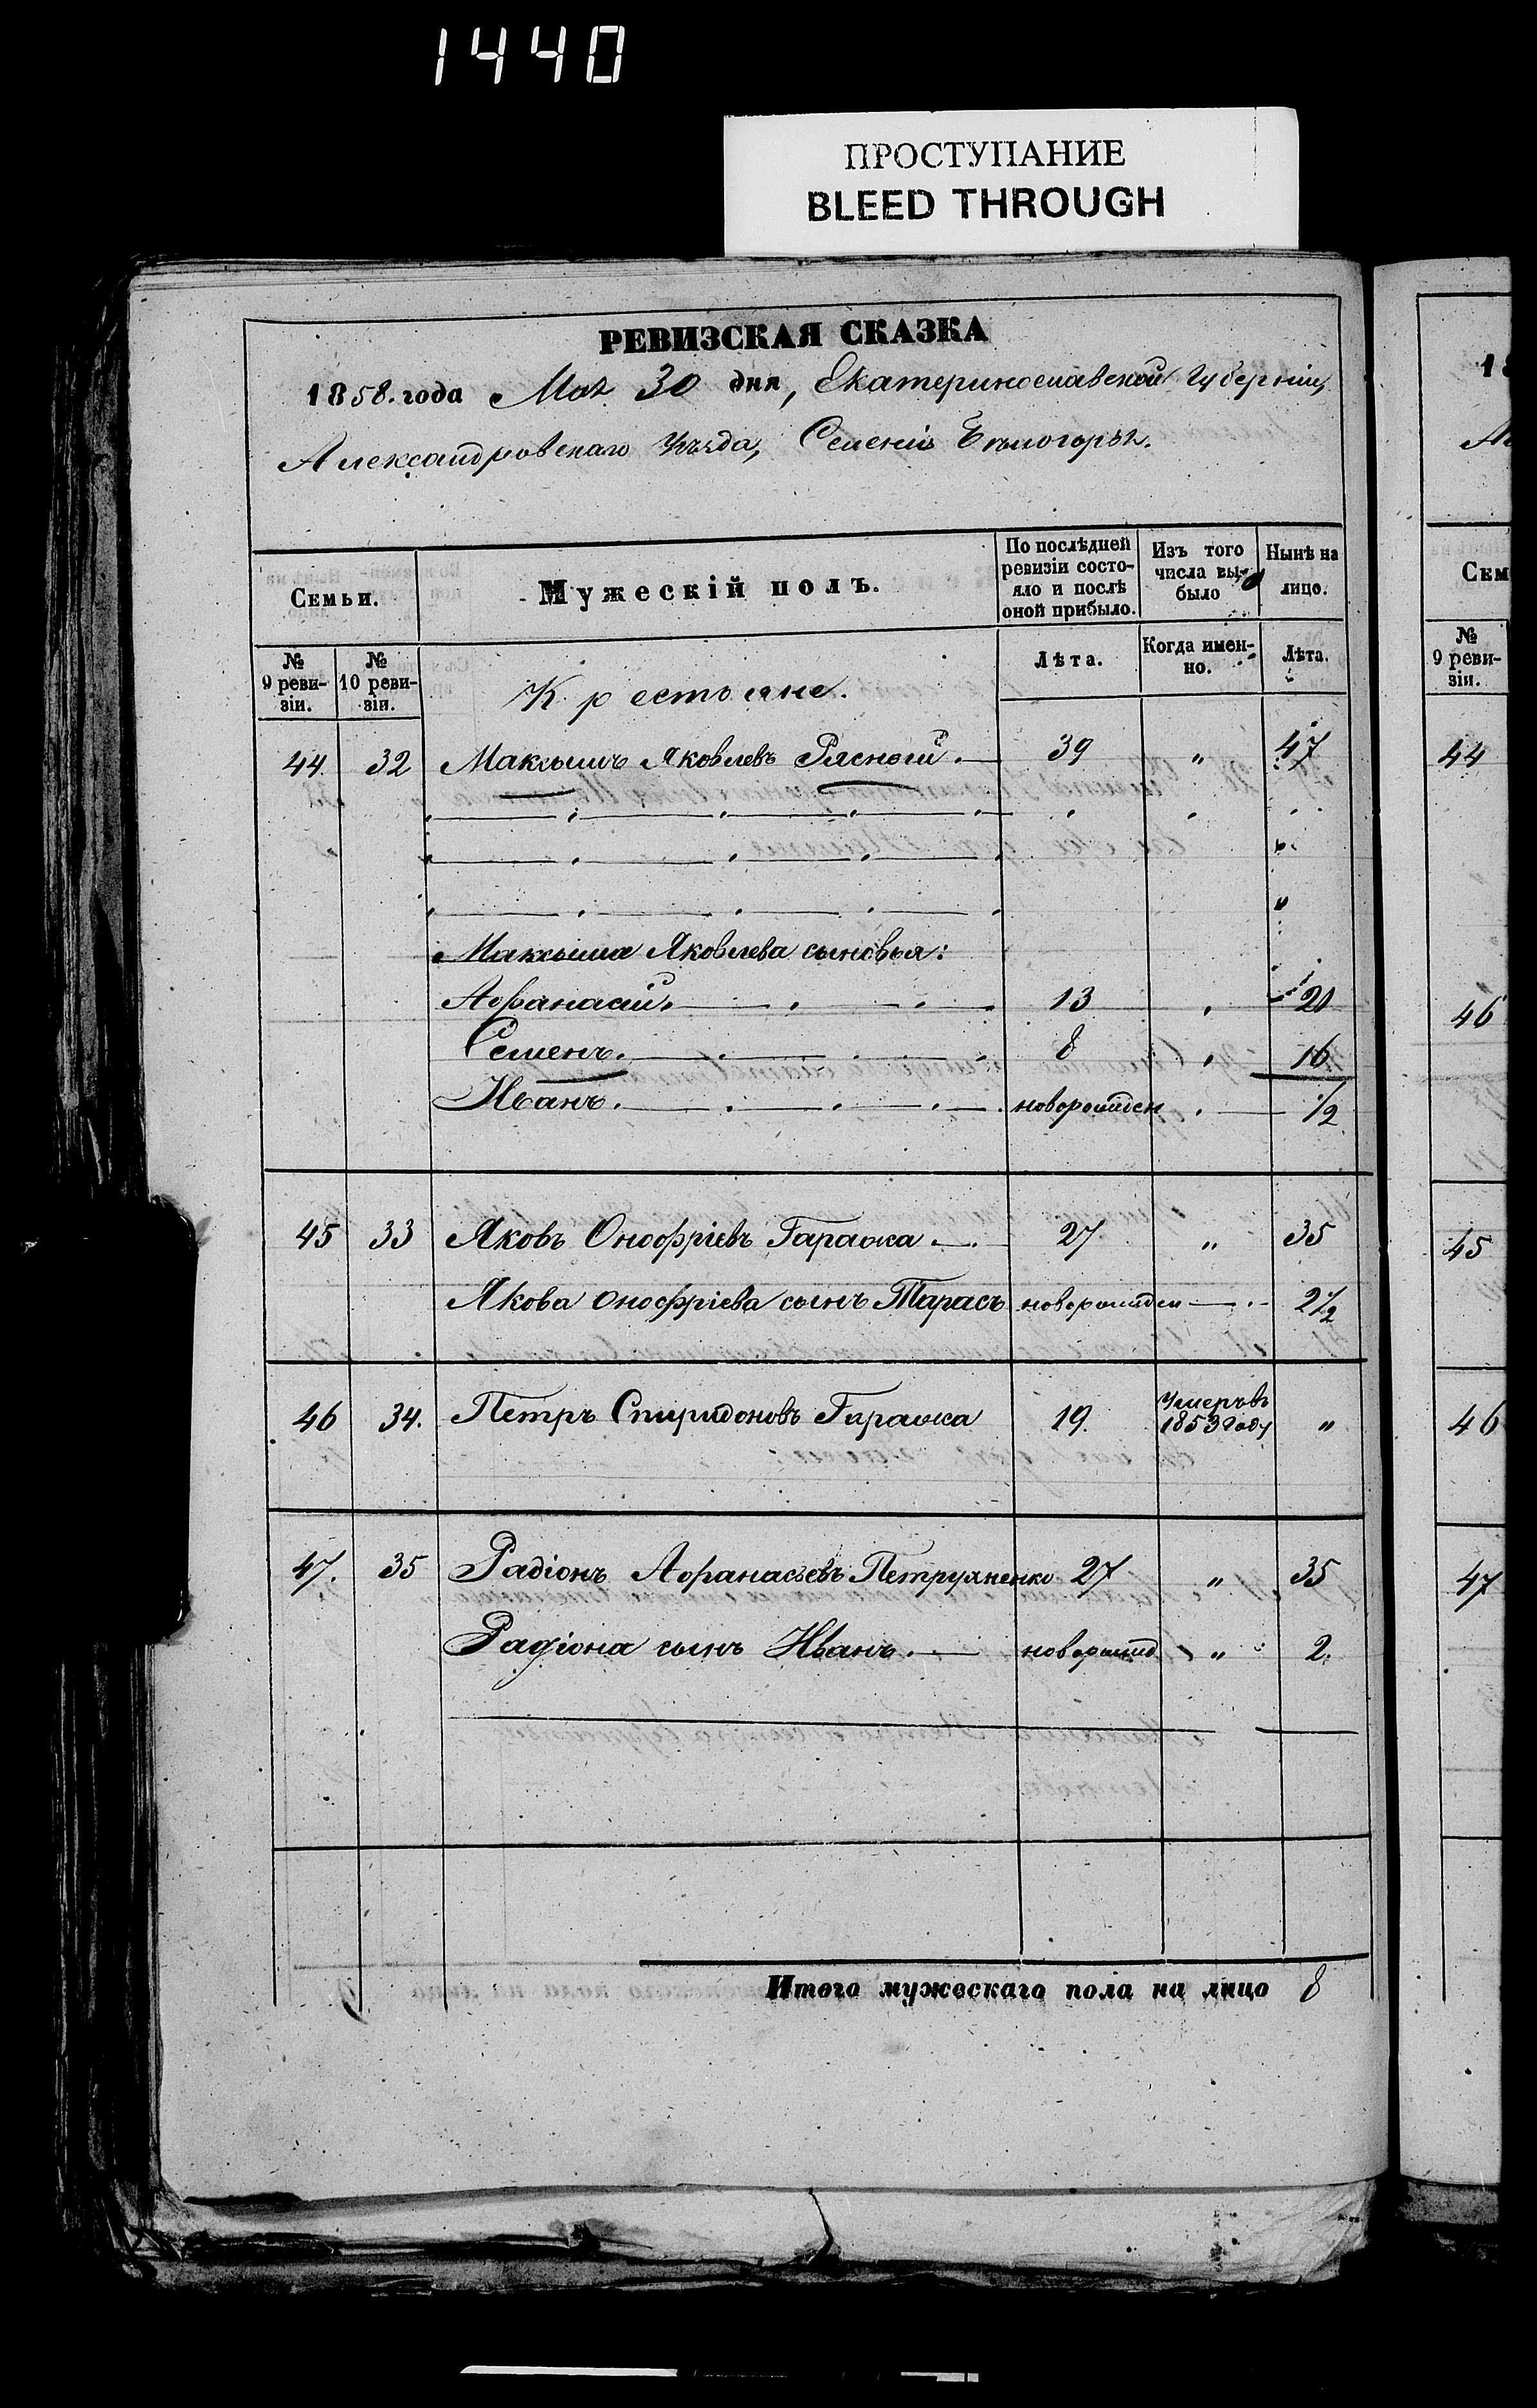 1440
ПРОСТУПАНИЕ
BLEED THROUGH
РЕВИЗСКАЯ СКАЗКА
1858. года Мая 30 дня, Екатеринославской Губерніи,
Александровскаго Уѣзда, Селенія Бѣлогорья.
Семьи.
Мужескій полъ.
По послѣдней ревизіи состояло и послѣ оной прибыло.
Изъ того числа выбыло
Ныне на лицо.
№ 9 ревизіи.
№ 10 ревизіи.
Крестьяне.
Лѣта.
Когда именно.
Лѣта.
44 32 Максимъ Яковлевъ Рясной. 39 " 47
Максима Яковлева сыновья:
Афанасий. 13 20
Семенъ. 8 16
Иванъ. новорожден 1/2
45 33 Яковъ Онофріевъ Гаражка 27 " 35
Якова Онофріева сынъ Тарасъ новорожден 2 1/2
46 34. Петръ Спиридоновъ Гаражка 19. Умеръ въ 1853 году "
47. 35 Радіонъ Афанасьевъ Петруяненко 27 " 35
Радіона сынъ Иванъ. новорожд " 2.
Итого мужескаго пола на лицо 8
18
Сем
№ 9 ревизіи.
44
46
45
46
47